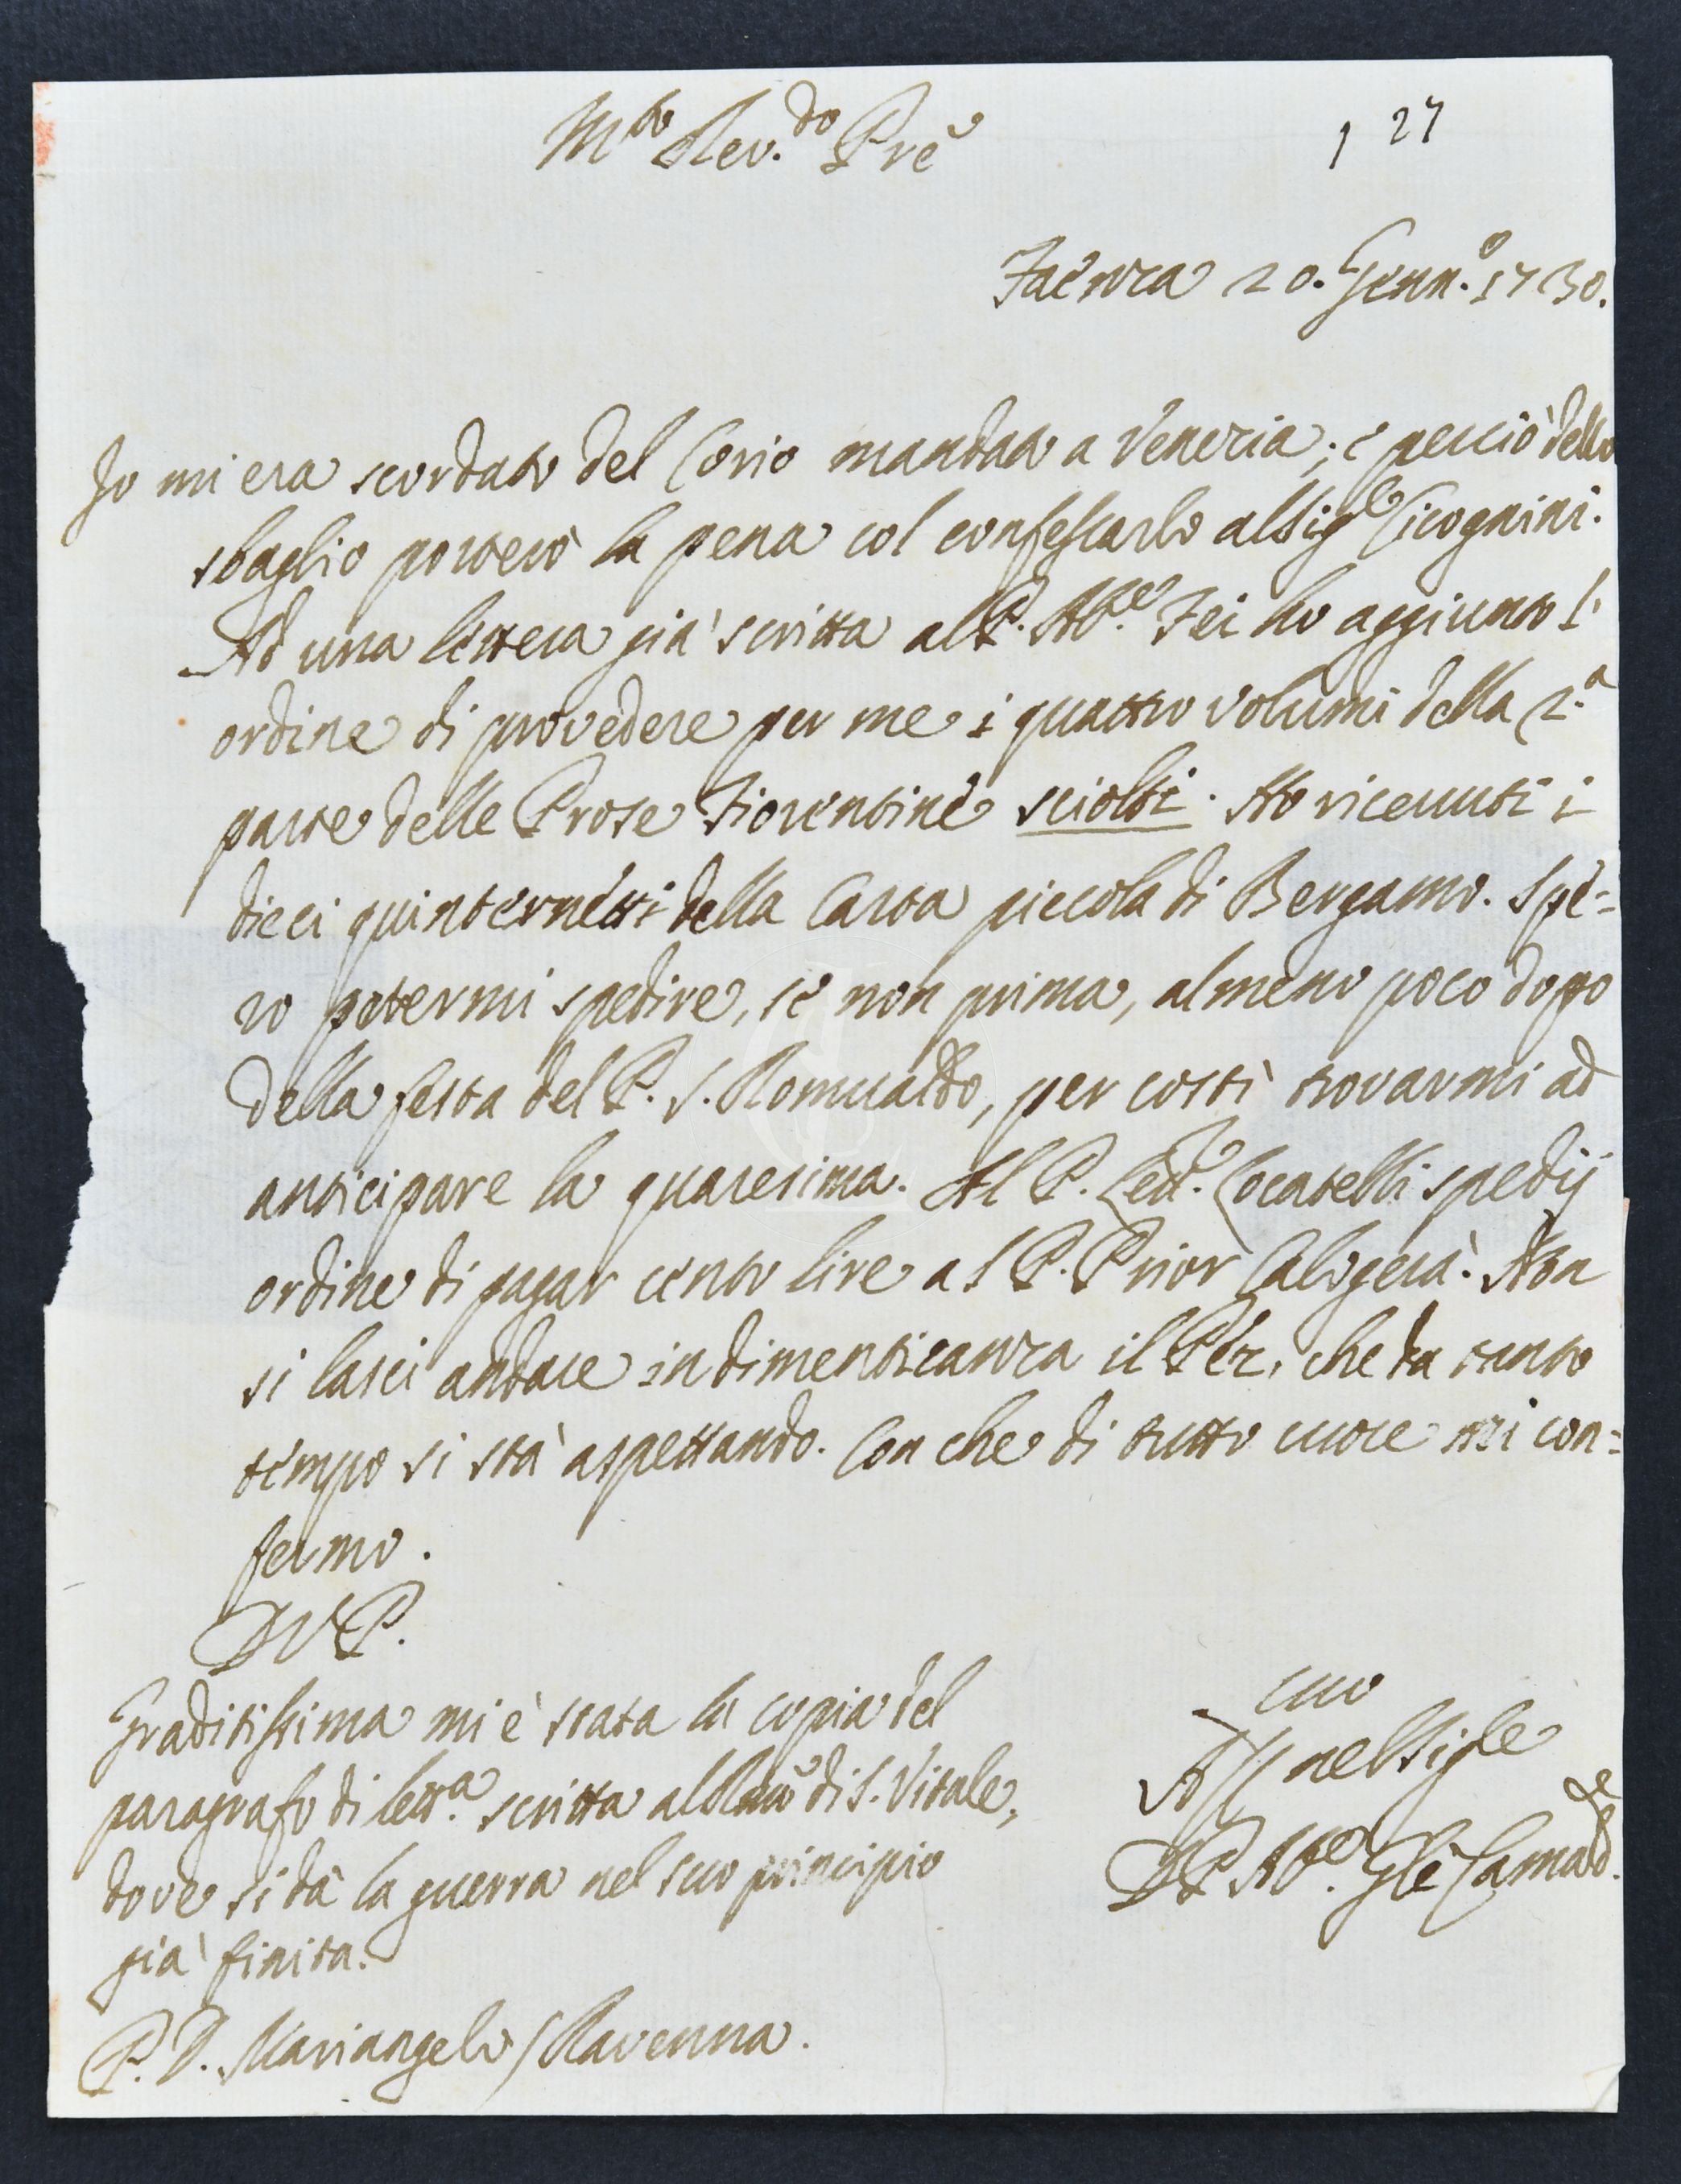 M.to Rev.do Pre
1 27
Faenza 20. Genn.o 1730.
Io mi era scordato del Corio mandato a Venezia; e perciò dello
sbaglio porterò la pena col confessarlo al Sig.e Cicognini.
Ad una lettera già scritta al P. Ab.e Fei ho aggiunto l'
ordine di provedere per me i quattro volumi della 2.a
parte delle Prose Fiorentine sciolti. Ho ricevuti i
dieci quinternetti della Carta piccola di Bergamo. Spe=
ro potermi spedire, se non prima, almeno poco dopo
della festa del P. S. Romualdo, per costì trovarmi ad
anticipare la quaresima. Al P. Lett.e Locatelli spedij
ordine di pagar cento lire al P. Prior Calogerà. Non
si lasci andare in dimenticanza il Pez, che da tanto
tempo si stà aspettando. Con che di tutto cuore mi con=
fermo.
D V P.
Graditissima mi è stata la copia del
paragrafo di lett.a scritta al di S. Vitale,
dove si dà la guerra nel suo principio
già finita.
P. D. Mariangelo / Ravenna.
Aff nel Sig.e
D P. Ab.e Gle Camald.e